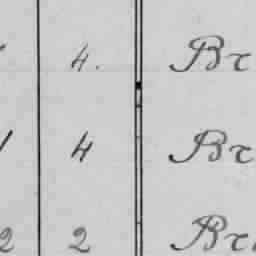 4. Br
1 4 Br
2 2 Br